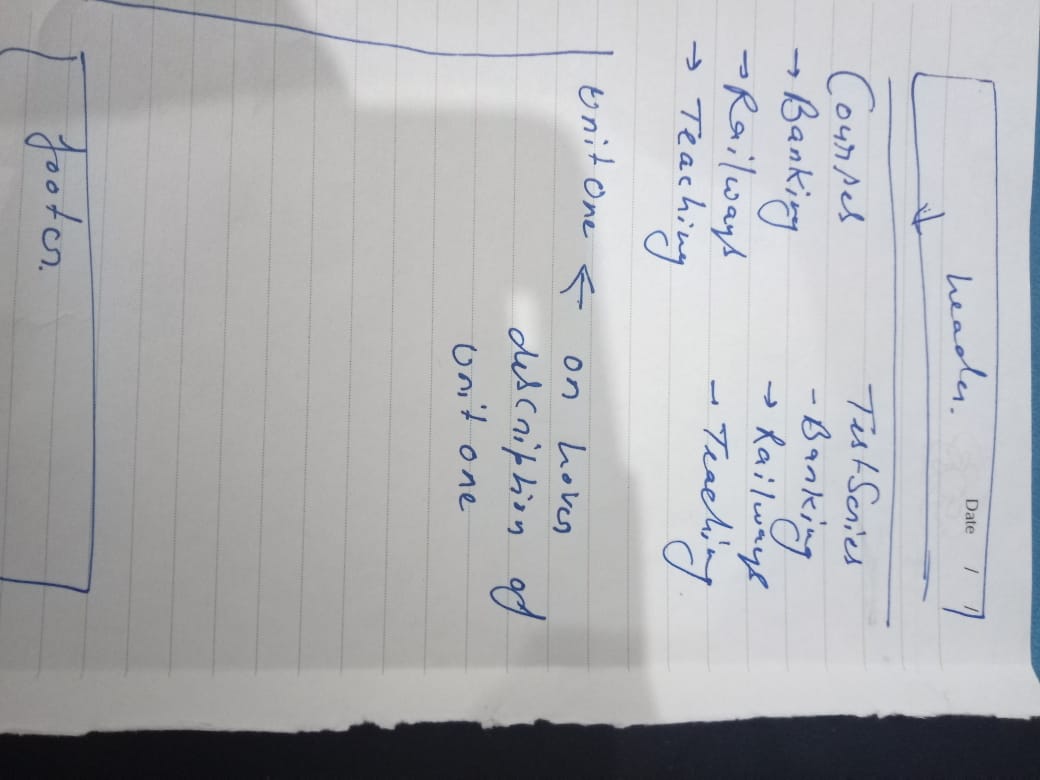 Date / /
header.
Courses
→ Banking
→ Railways
→ Teaching
Test Series
- Banking
→ Railways
→ Teaching
Unit One ← on hover
description of
Unit one
footer.